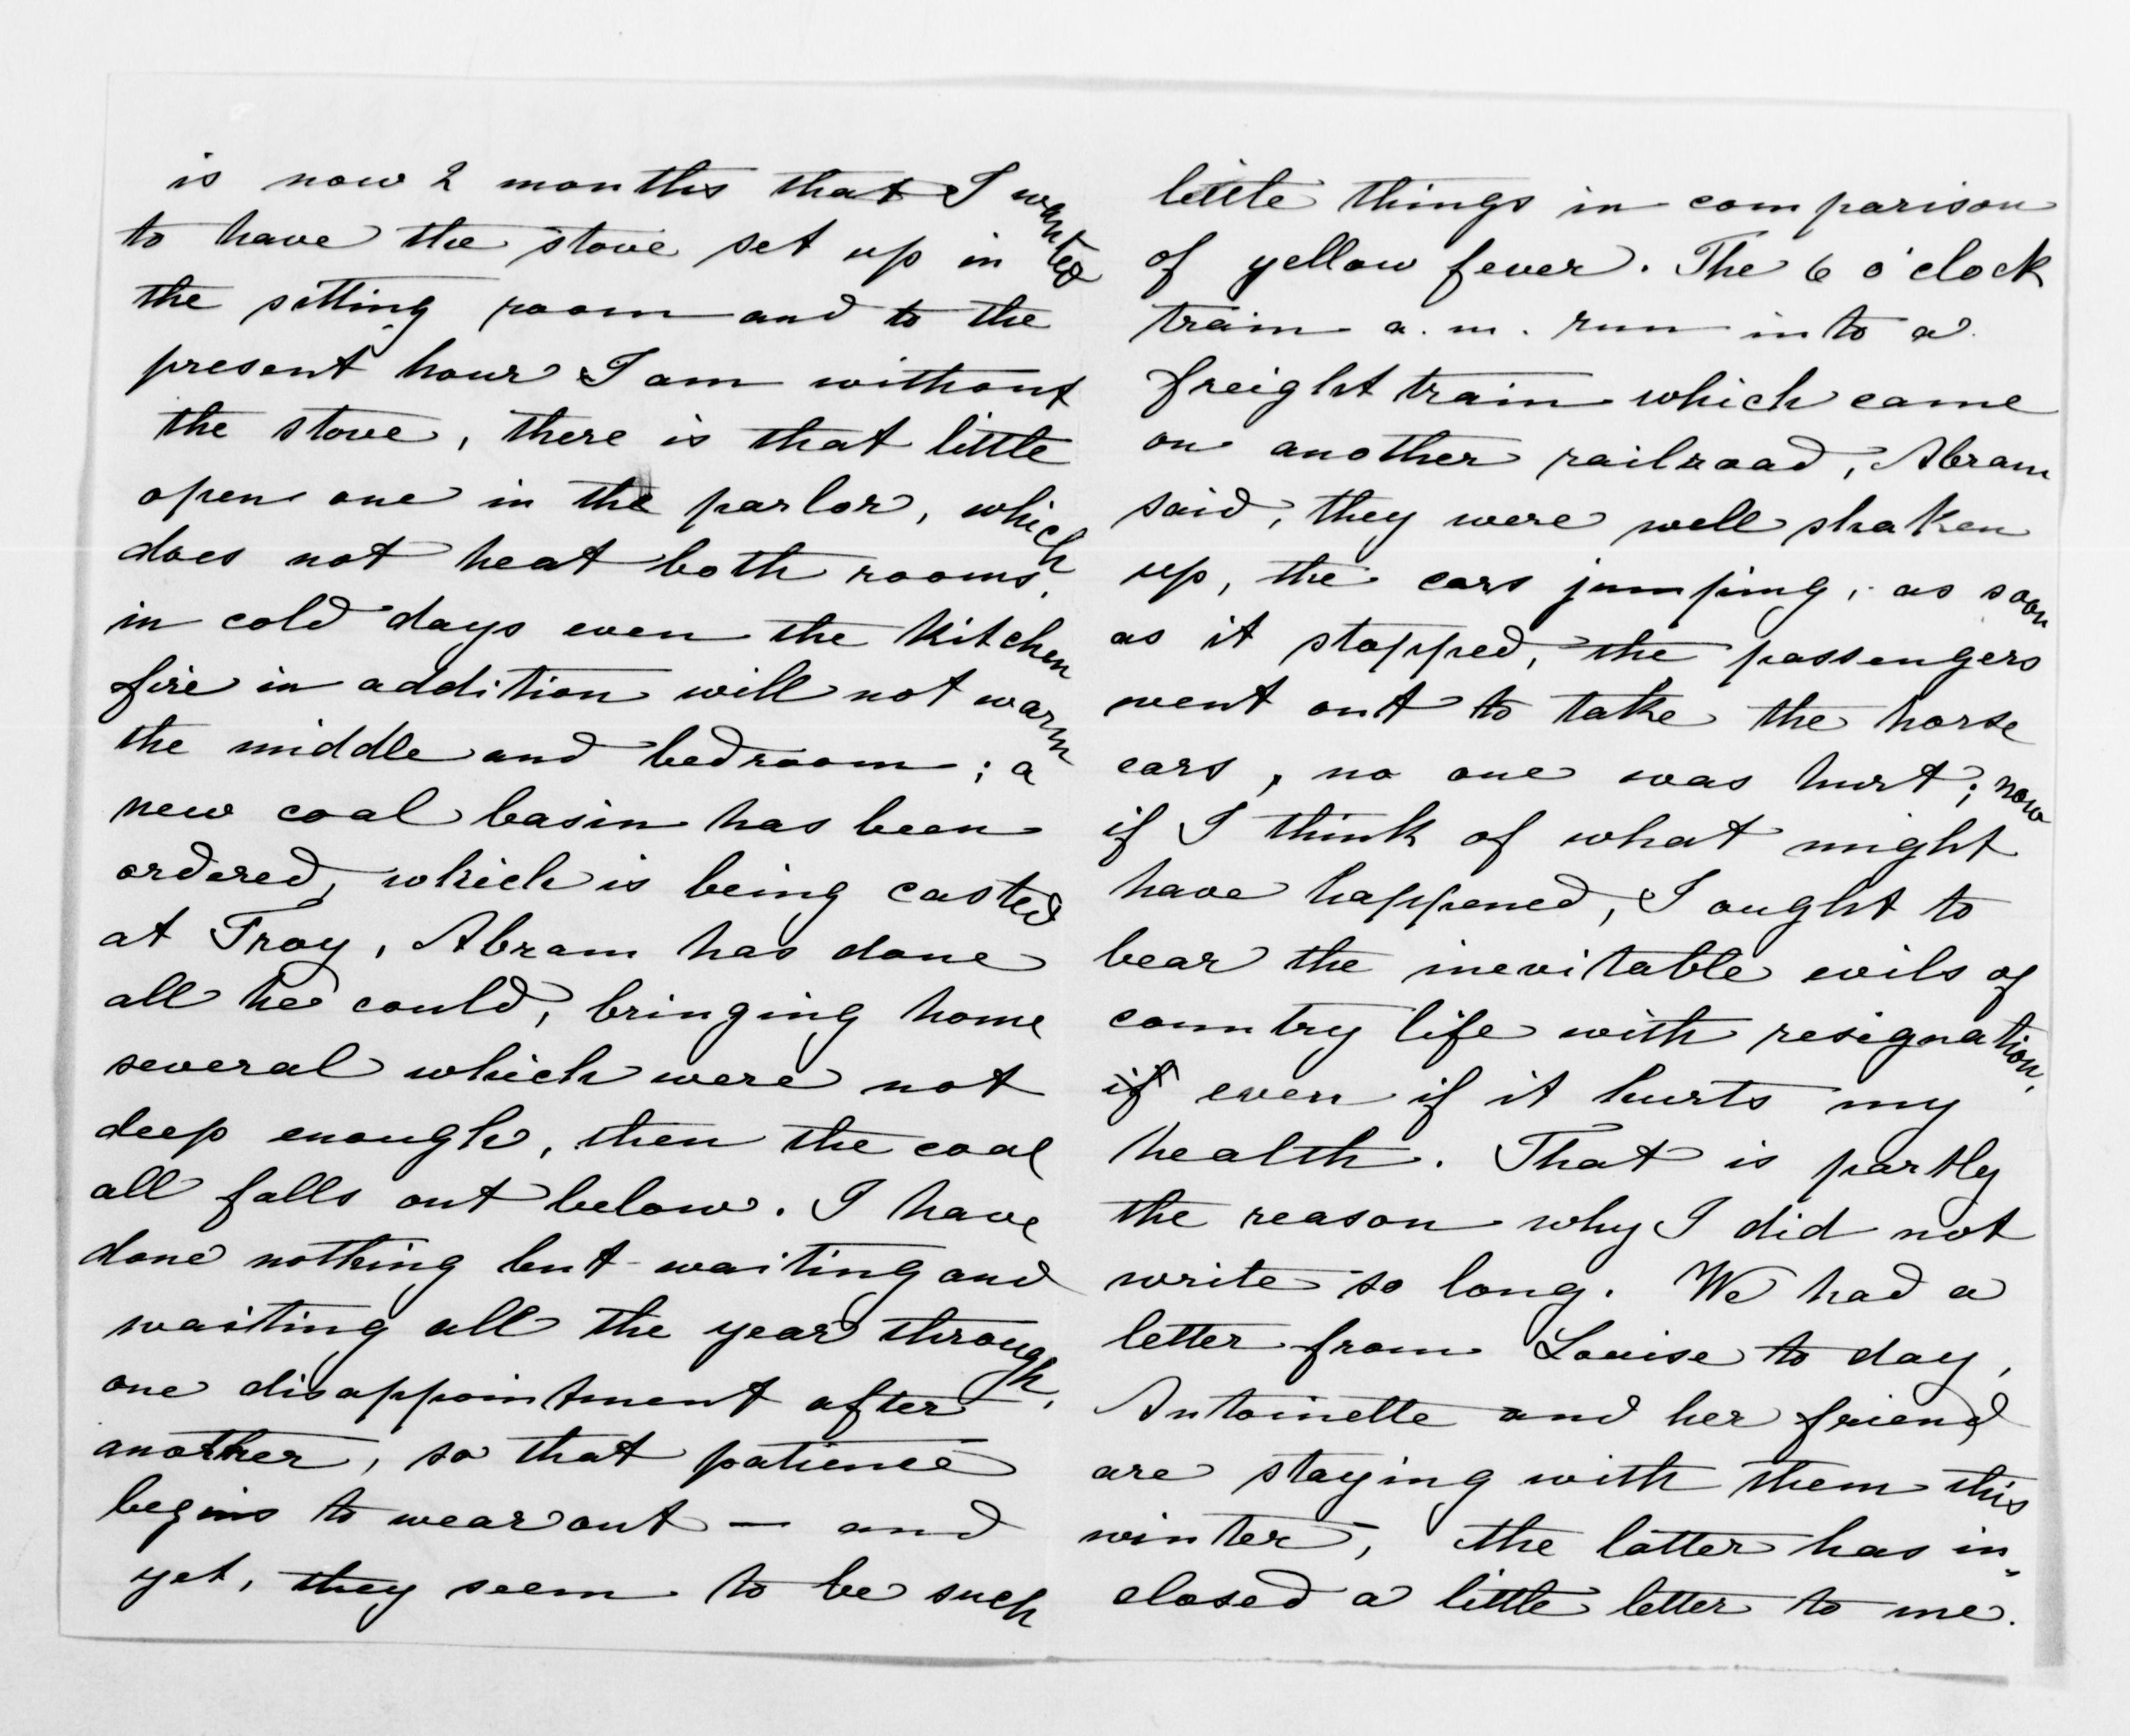 is now 2 months that I wanted
to have the stove set up in
the sitting room and to the
present hour I am without
the stove, there is that little
open one in the parlor, which
does not heat both rooms,
in cold days even the Kitchen
fire in addition will not warm
the middle and bedroom; a
new coal basin has been
ordered, which is being casted
at Troy, Abram has done
all he could, bringing home
several which were not
deep enough, then the coal
all falls out below. I have
done nothing but waiting and
waiting all the year through,
one disappointment after
another, so that patience
begins to wear out — and
yet, they seem to be such
little things in comparison
of yellow fever. The 6 o'clock
train a.m. run into a
freight train which came
on another railroad, Abram
said, they were well shaken
up, the cars jumping, as soon
as it stopped, the passengers
went out to take the horse
cars, no one was hurt; now
if I think of what might
have happened, I ought to
bear the inevitable evils of
country life with resignation,
if even if it hurts my
health. That is partly
the reason why I did not
write so long. We had a
letter from Louise to day,
Antoinette and her friend
are staying with them this
winter, the latter has in-
closed a little letter to me.